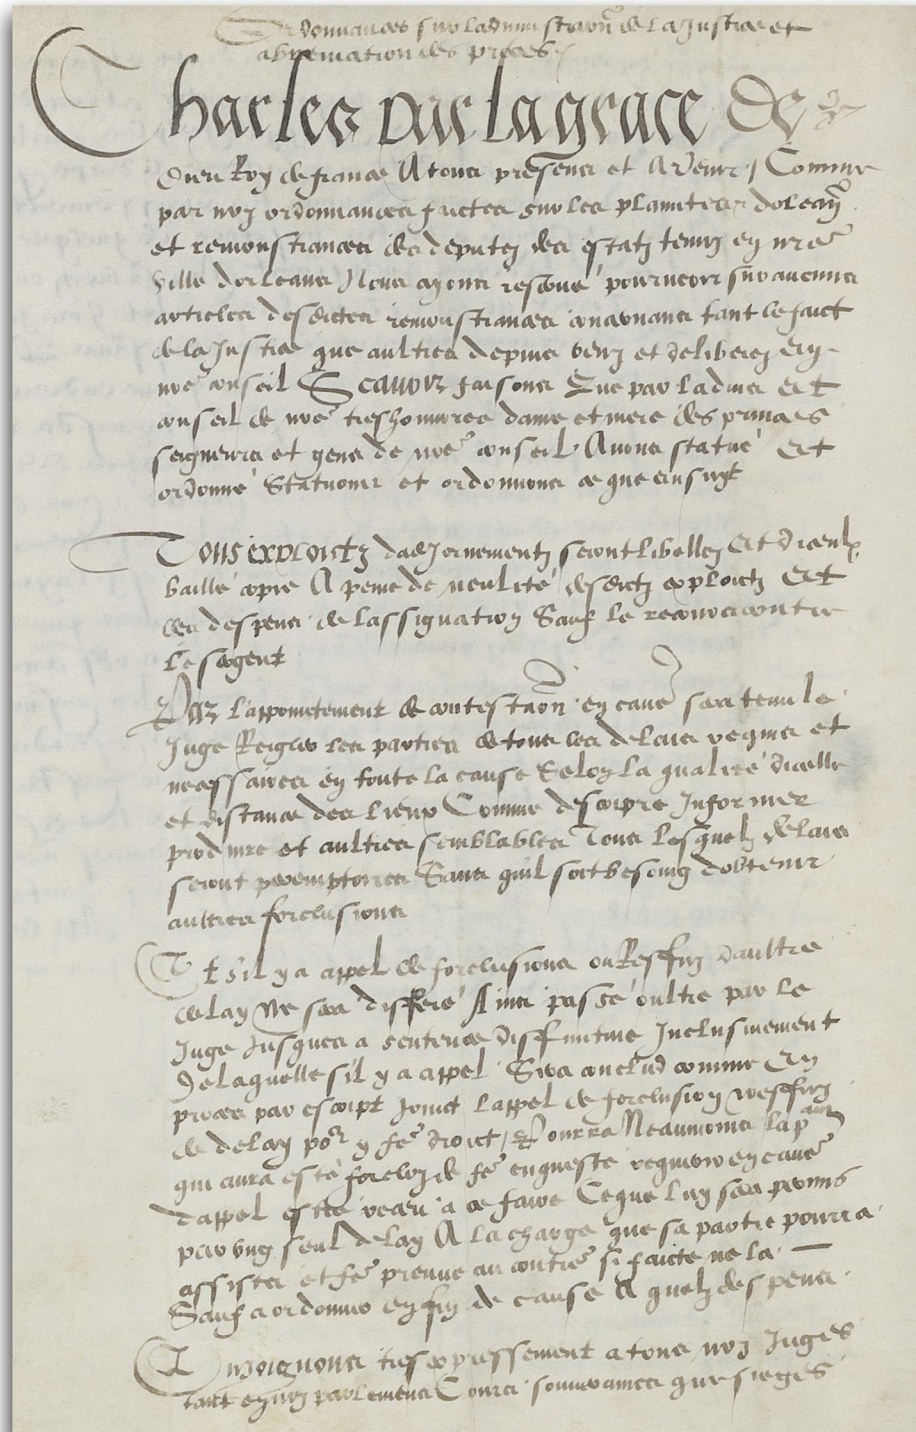 Ordonnances sur ladministraon de la Justice et
abbreviation des proces
Charles par la grace de
dieu Roy de france A tous presens et A venir / Comme
par noz ordonnances faictes sur les plainctes doleanc
et remonstrances des deputez des estatz tenuz en nre
ville dorleans Nous ayons reservé pourveoir sur aucuns
articles desdictes remonstrances concernans tant le faict
de la Justice que aultres depuis venz et deliberez en
nre conseil Scavoir faisons Que par ladvis Et
conseil de nre treshonnoree dame et mere des princes
seigneurs et gens de nre conseil Avons statué Et
ordonné Statuons et ordonnons ce que ensuyt
Tous exploictz dadjornementz seront libellez Et diceulx
baillé copie A peine de nullité desdictz exploictz Et
des despens de lassignation Sauf le recours contre
le sergent
Par lappoinctement de contestaon en cause sera tenu le
Juge Reigler les parties de tous les delais requis et
necessaires en toute la cause Selon la qualité dicelle
et distance des lieux Comme descripre Informer
produire et aultres semblables Tous lesquelz delais
seront peremptoires Sans quil soit besoing dobtenir
aultres forclusions
Et sil y a appel de forclusions ou Reffuz daultre
delay Ne sera differé Ains passé oultre par le
Juge Jusques a sentence diffinitive Inclusivement
De laquelle sil y a appel Sera conclud comme En
proces par escript Joinct lappel de forclusion reffuz
de delay por y fe droict / Pourra Neanmoins la partie
qui aura esté forcloz de fe enqueste requerir en cause
dappel estre receu a ce faire Ce que luy sera permis
par ung seul delay A la charge que sa partie pourra
assister et fe preuve au contre si faicte ne la
Sauf a ordonner en fin de cause A quelz despens
Enjoignons tresexpressement a tous noz Juges
tant en noz parlemens Cours souveraines que sieges